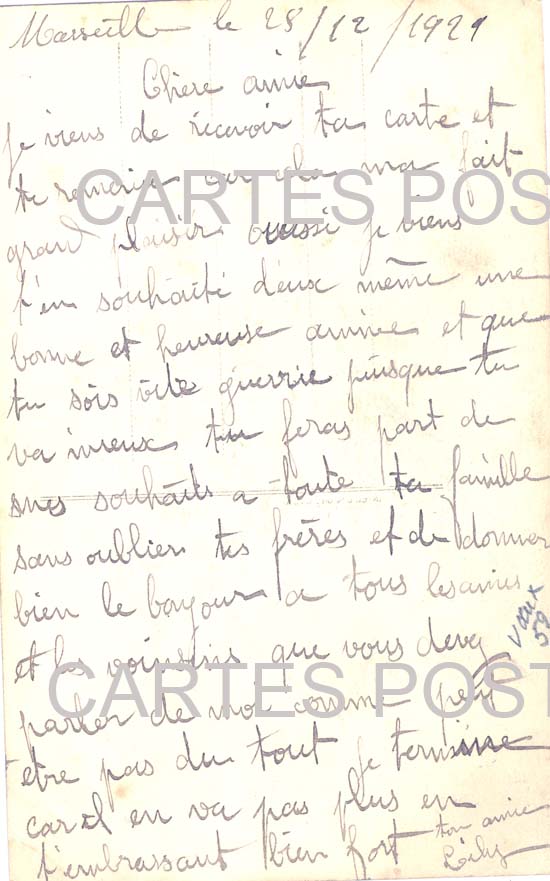 Marseille le 28/12/1921
Chere amie
je viens de recevoir ta carte et
te remercie car cela ma fait
grand plaisir aussi je viens
t'en souhaité deux même une
bonne et heureuse année et que
tu sois vite guerrie puisque tu
va mieux tu feras part de
mes souhaits a toute ta famille
sans oublier tes frères et de donner
bien le bonjour a tous les amies
et les voinsins que vous devez
parler de moi comme peut
etre pas du tout je termine
car il en va pas plus en
t'embrassant bien fort ton amie
Vaux
59
CARTES POST
CARTES POST